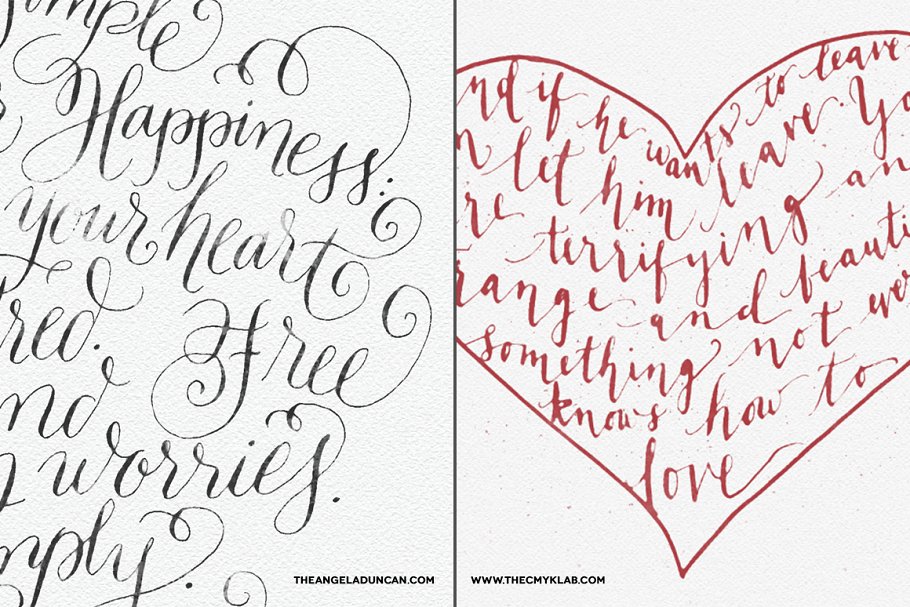 simple
Happiness:
your heart
red.
Free
nd
worries.
mply.
THEANGELADUNCAN.COM
nd if he wants to leave
let him leave. Yo
re terrifying an
range and beauti
something not ever
knows how to
love
WWW.THECMYKLAB.COM